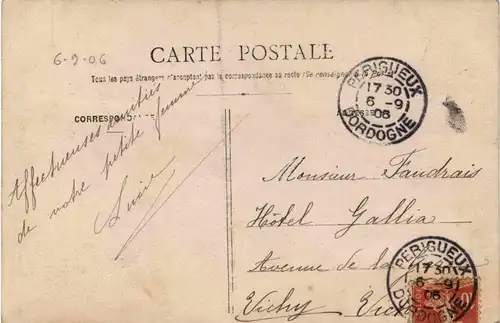 6-9-06
CARTE POSTALE
Tous les pays étrangers n'acceptant pas la correspondance au recto (Se renseigner à la Poste)
CORRESPONDANCE
PERIGUEUX
17 30
6 -9
06
DORDOGNE
Affectueuses amitiés
de votre petite femme
Monsieur Faudrais
Hôtel Gallia
Avenue de la
Vichy
PERIGUEUX
17 30
6 -9
06
DORDOGNE